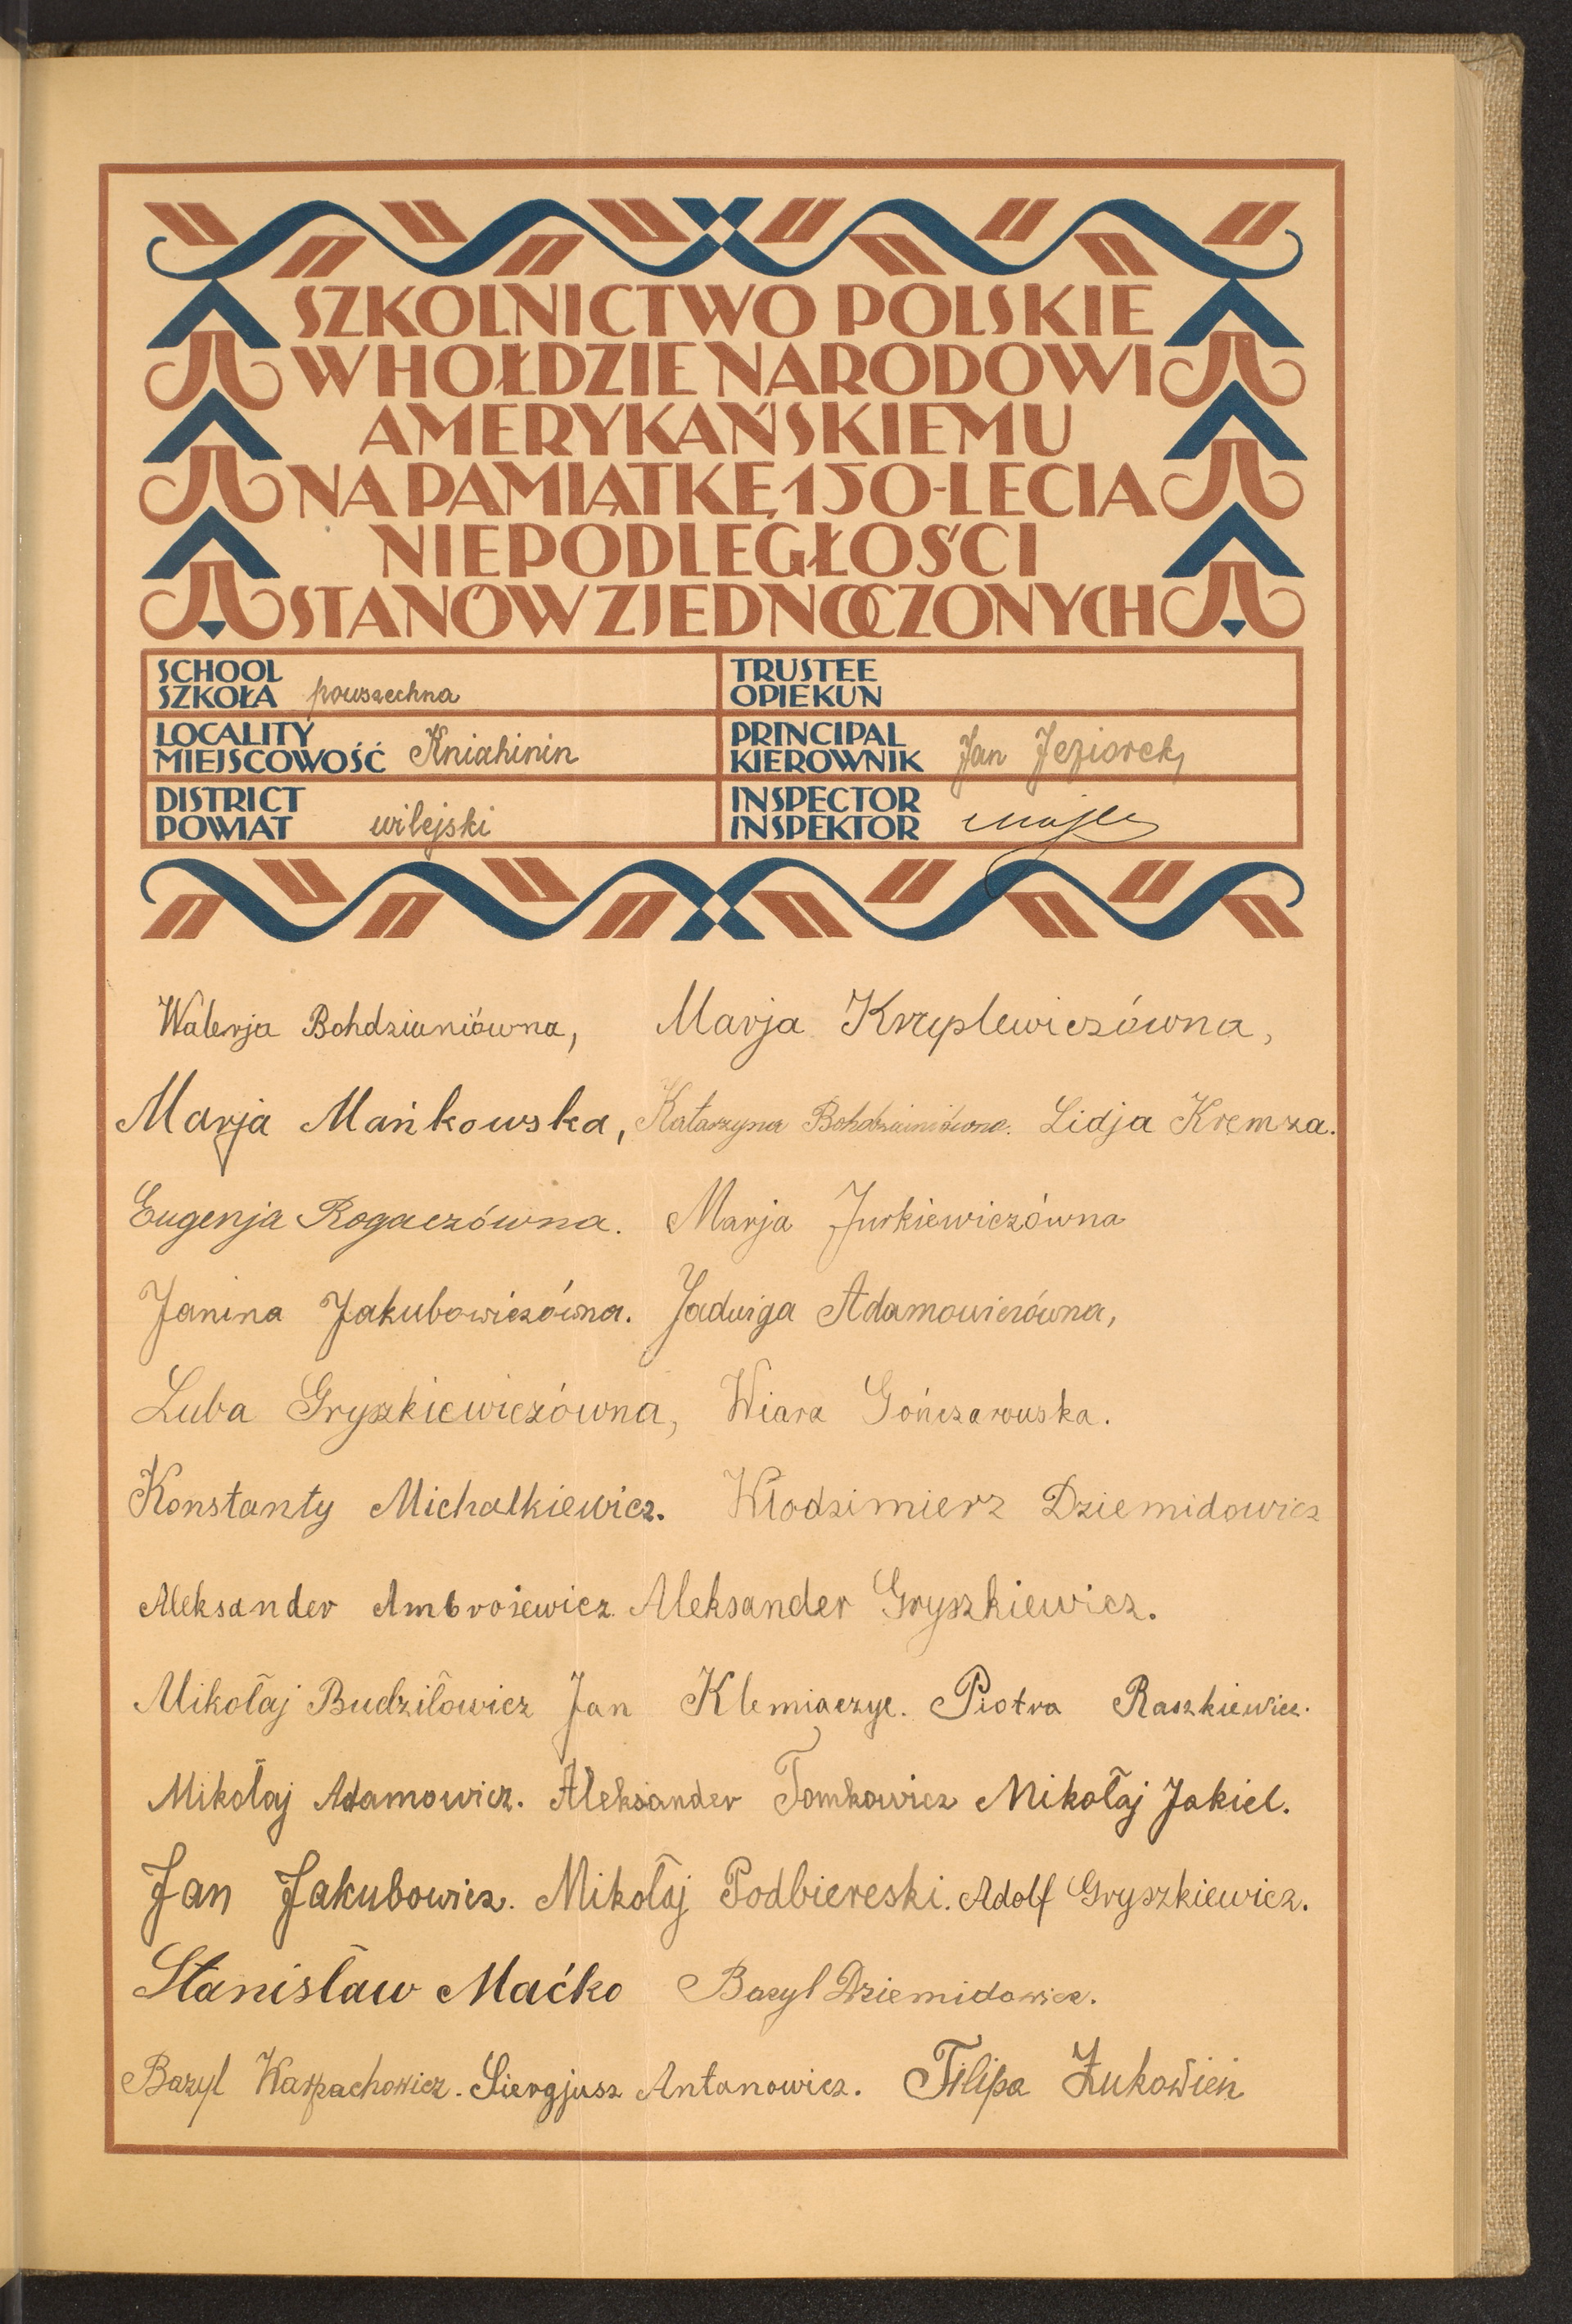 SZKOLNICTWO POLSKIE
W HOŁDZIE NARODOWI
AMERYKAŃSKIEMU
NA PAMIĄTKĘ 150-LECIA
NIEPODLEGŁOŚCI
STANÓW ZJEDNOCZONYCH
SCHOOL
SZKOŁA powszechna
TRUSTEE
OPIEKUN
LOCALITY
MIEJSCOWOŚĆ Kniahinin
PRINCIPAL
KIEROWNIK Jan Jeziorek
DISTRICT
POWIAT wilejski
INSPECTOR
INSPEKTOR
Walerja Bohdziuniówna, Marja Krzyplewiczówna,
Marja Mańkowska, Katarzyna Bohdziuniówna. Lidja Kremza.
Eugenja Rogaczówna. Marja Jurkiewiczówna
Janina Jakubowiczówna. Jadwiga Adamowiczówna,
Luba Gryszkiewiczówna, Wiara Gończarowska.
Konstanty Michalkiewicz. Włodzimierz Dziemidowicz
Aleksander Ambrożewicz. Aleksander Gryszkiewicz.
Mikołaj Budziłowicz Jan Klemiaczyc. Piotra Raszkiewicz.
Mikołaj Adamowicz. Aleksander Tomkowicz Mikołaj Jakiel.
Jan Jakubowicz. Mikołaj Podbiereski. Adolf Gryszkiewicz.
Stanisław Maćko Bazyl Dziemidowicz.
Bazyl Karpachowicz. Siergjusz Antanowicz. Filipa Żukowień